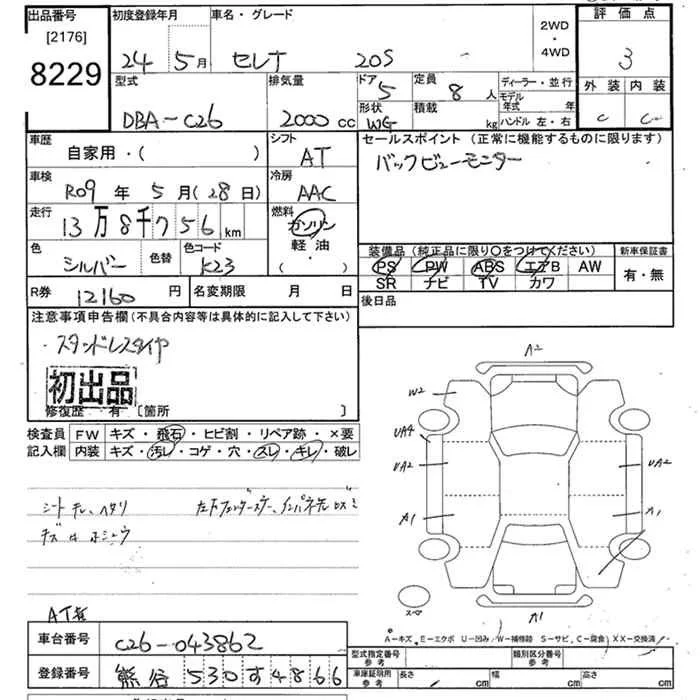 出品番号
[2176]
8229
初度登録年月
24 5月
車名・グレード
セレナ 20S
2WD
・
4WD
評価点
3
外装 内装
C C
型式
DBA-C26
排気量
2000cc
ドア
5
定員
8人
形状
WG
積載
kg
ディーラー・並行
モデル年式 年
ハンドル 左・右
車歴
自家用・( )
シフト
AT
セールスポイント (正常に機能するものに限ります)
バックビューモニター
車検
R09年5月(28日)
冷房
AAC
走行
13万8千756km
燃料
ガソリン
軽油
・( )
色
シルバー
色替
色コード
K23
装備品 (純正品に限り○をつけてください)
PS PW ABS エアB AW
SR ナビ TV カワ
新車保証書
有・無
R券 12160円
名変期限 月 日
後日品
注意事項申告欄(不具合内容等は具体的に記入して下さい)
・スタンドレスタイヤ
初出品
修復歴 有 [箇所 ]
検査員記入欄
FW キズ・飛石・ヒビ割・リペア跡・×要
内装 キズ・汚レ・コゲ・穴・スレ・キレ・破レ
シート キレ、ヘタリ
キズ
A2
W2
UA4
UA2
UA2
A1
A1
スマ
A1
A-キズ, E-エクボ U-凹み, W-補修跡 S-サビ, C-腐食, XX-交換済
車台番号
C26-043862
登録番号
熊谷 530 す 4866
型式指定番号
参考
類別区分番号
参考
車庫証明用
参考
長さ cm
幅 cm
高さ cm